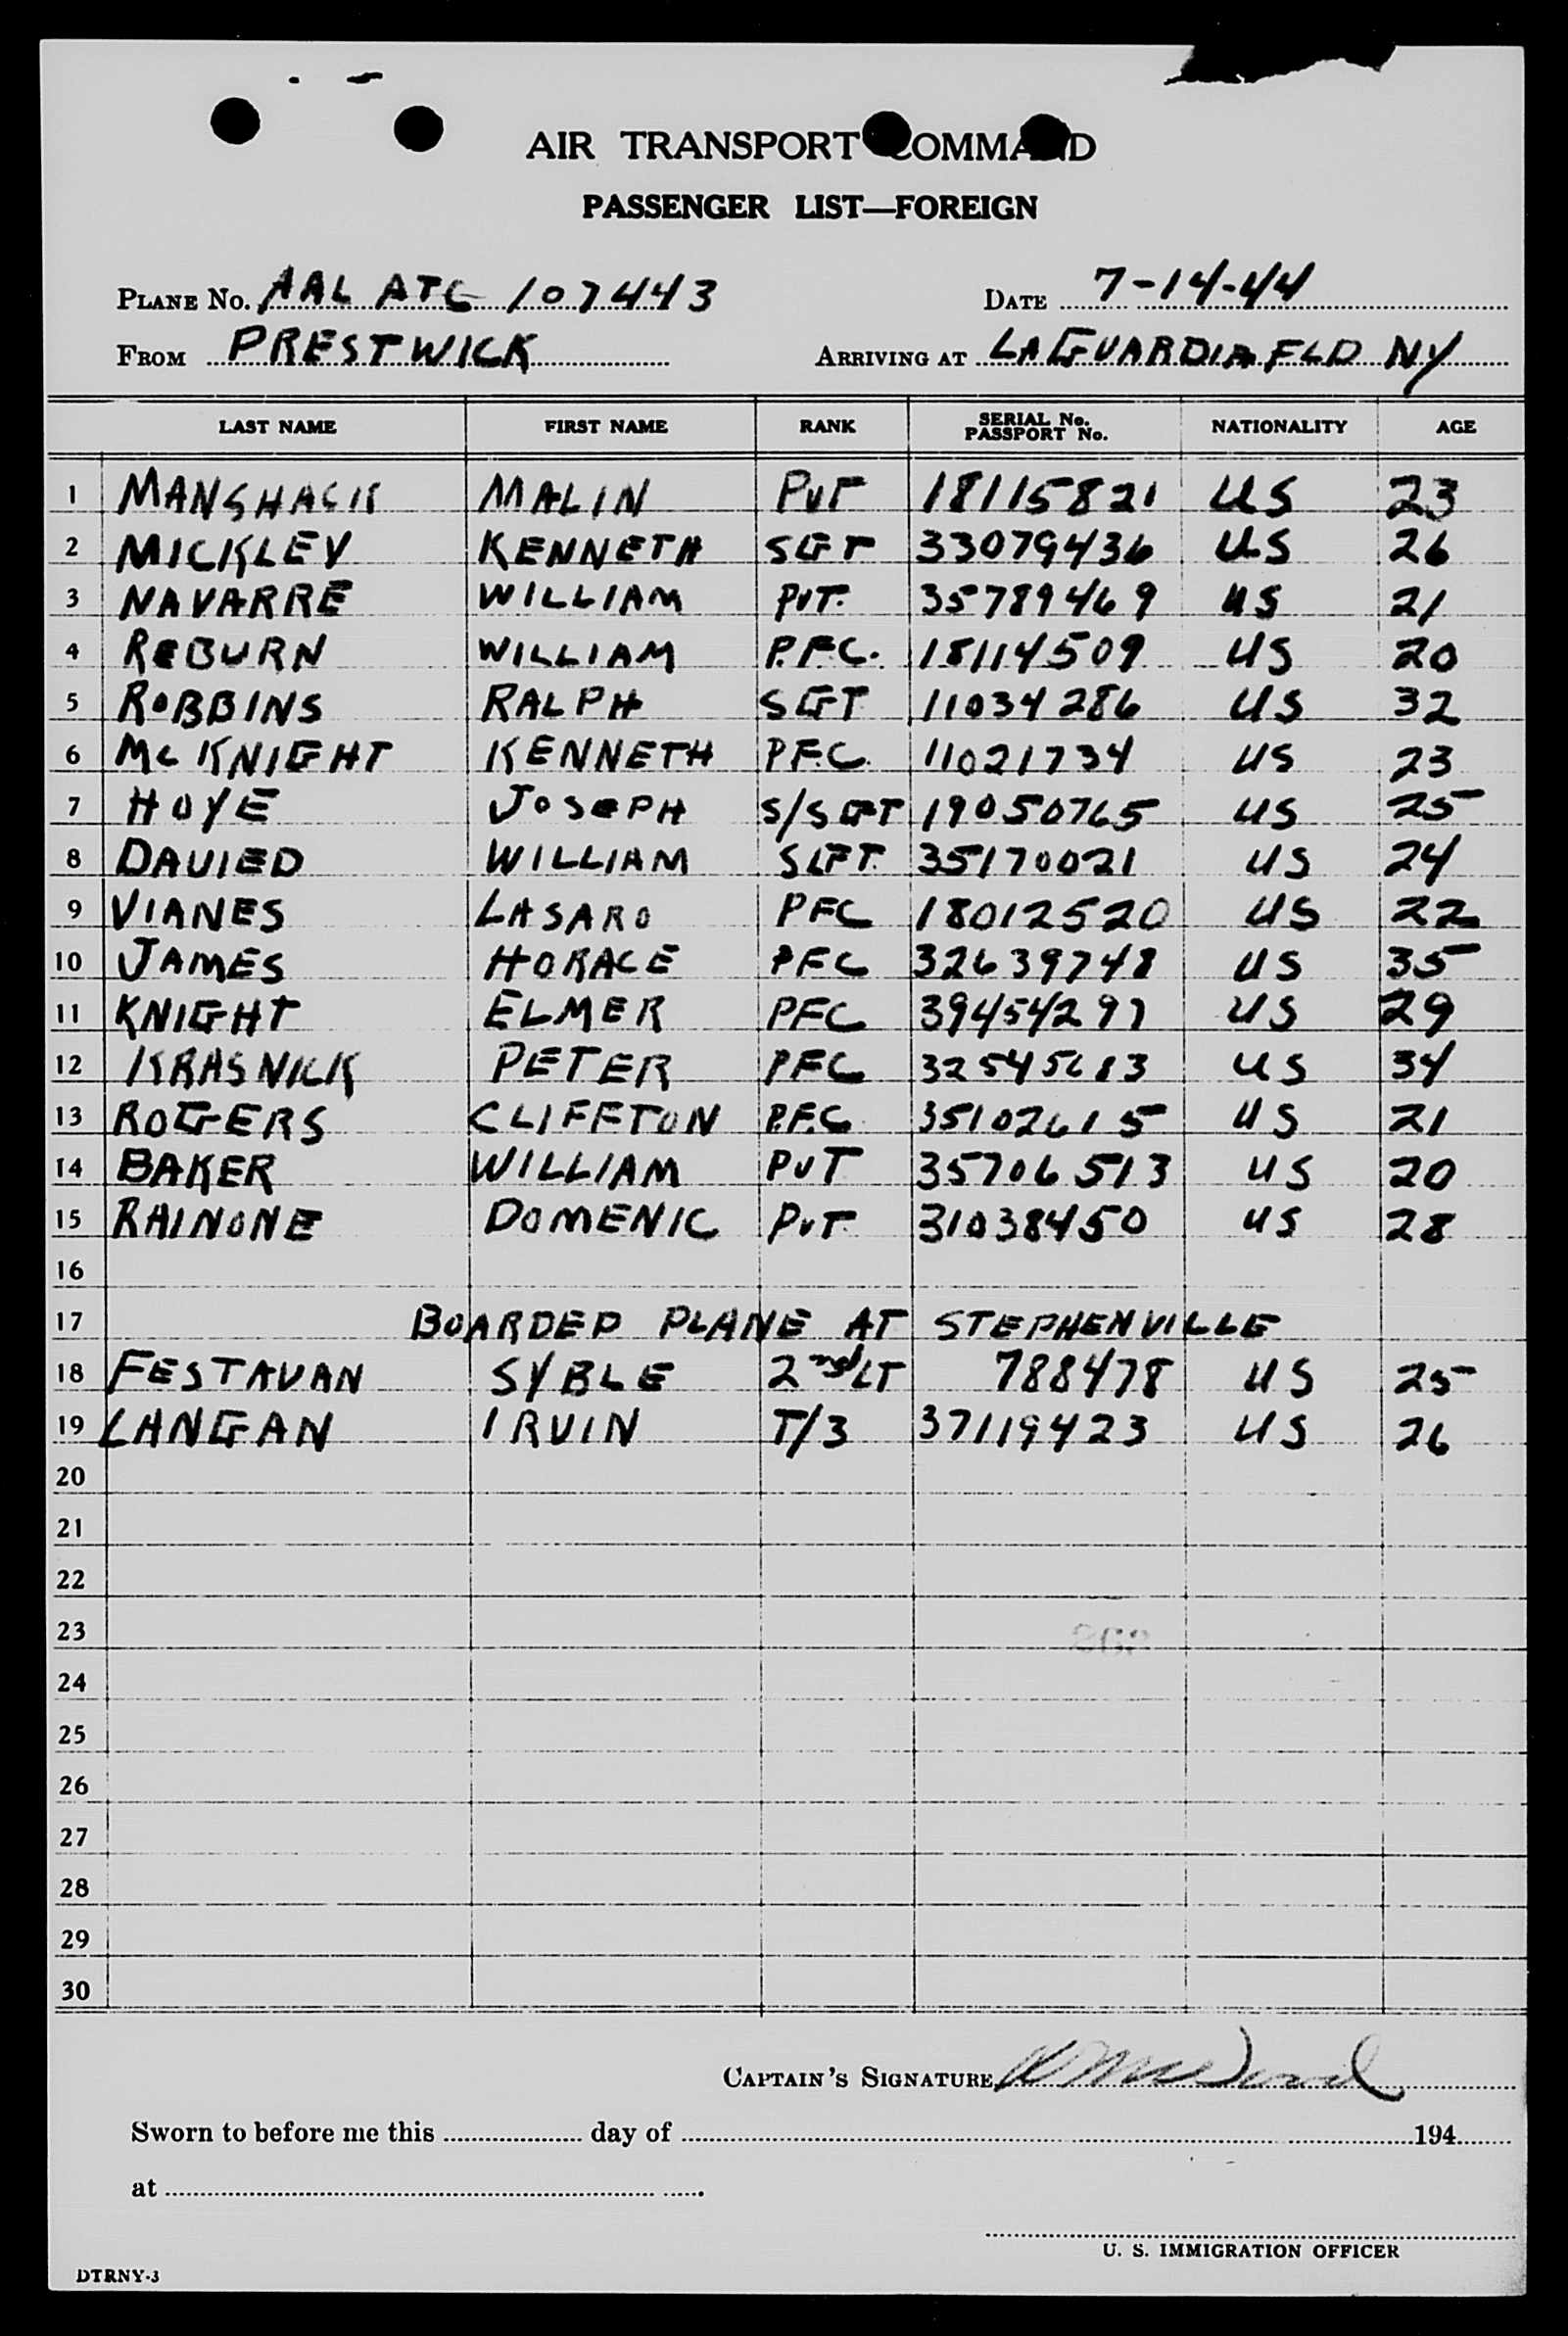 AIR TRANSPORT COMMAND
PASSENGER LIST—FOREIGN
PLANE No. AAL ATC 107443 DATE 7-14-44
FROM PRESTWICK ARRIVING AT LAGUARDIA FLD NY
LAST NAME FIRST NAME RANK SERIAL No. PASSPORT No. NATIONALITY AGE
1 MANSHACK MALIN PVT 18115821 US 23
2 MICKLEY KENNETH SGT 33079436 US 26
3 NAVARRE WILLIAM PVT. 35789469 US 21
4 REBURN WILLIAM P.F.C. 18114509 US 20
5 ROBBINS RALPH SGT 11034286 US 32
6 McKNIGHT KENNETH P.F.C. 11021734 US 23
7 HOYE JOSEPH S/SGT 19050765 US 25
8 DAVIED WILLIAM SGT. 35170021 US 24
9 VIANES LASARO PFC 18012520 US 22
10 JAMES HORACE PFC 32639748 US 35
11 KNIGHT ELMER PFC 39454297 US 29
12 KRASNICK PETER PFC US 34
13 ROGERS CLIFFTON P.F.C 35102615 US 21
14 BAKER WILLIAM PVT 35706513 US 20
15 RAINONE DOMENIC PVT. 31038450 US 28
16
17 BOARDED PLANE AT STEPHENVILLE
18 FESTAVAN SYBLE 2nd LT 788478 US 25
19 LANGAN IRVIN T/3 37119423 US 26
20
21
22
23
24
25
26
27
28
29
30
CAPTAIN'S SIGNATURE
Sworn to before me this day of 194
at
U. S. IMMIGRATION OFFICER
DTRNY-3